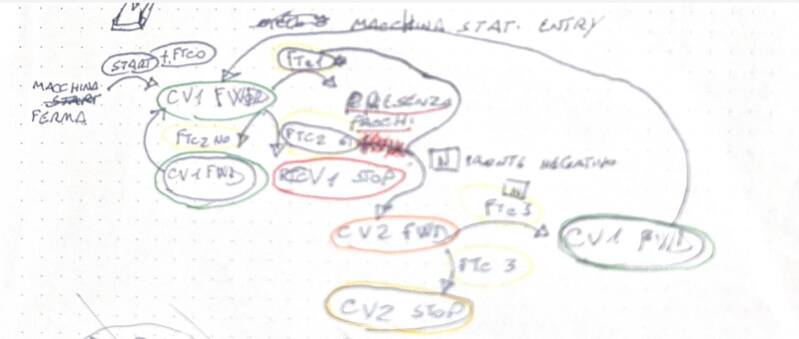 MACCHINA STAT. ENTRY
START + FTC0
FTC1
MACCHINA
START
FERMA
CV1 FWD
PRESENZA
PACCHI
FTC2 NO
FTC2
N FRONTE NEGATIVO
CV1 FWD
CV1 STOP
N
FTC3
CV2 FWD
CV1 FWD
FTC 3
CV2 STOP